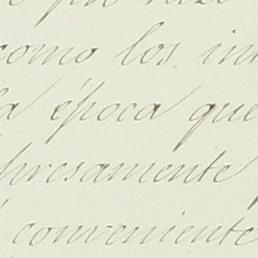 como los
la época que
presamente
conveniente